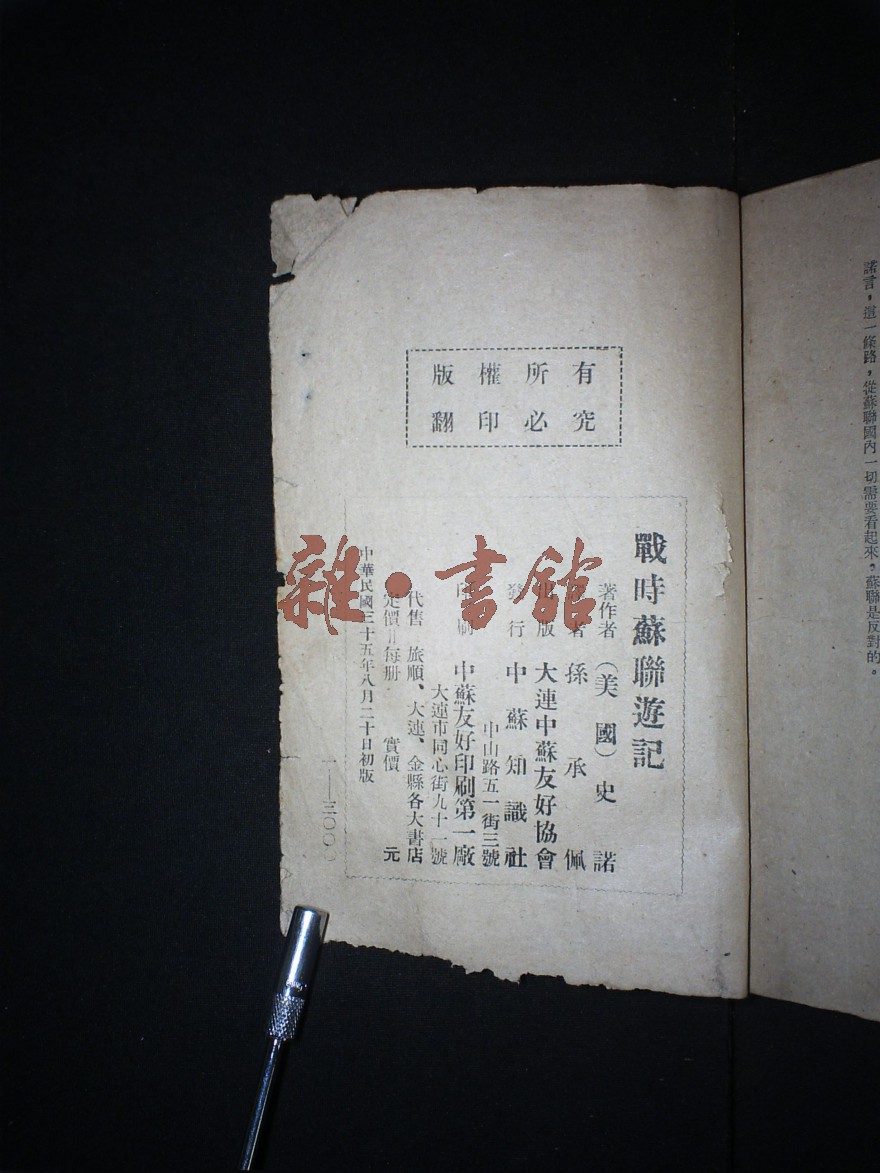 諾言，這一條路，從蘇聯國內一切需要看起來，蘇聯是反對的。
版權所有
翻印必究
戰時蘇聯遊記
著作者 (美國) 史諾
者 孫承佩
版 大連中蘇友好協會
發行 中蘇知識社
中山路五一街三號
印刷 中蘇友好印刷第一廠
大連市同心街九十一號
代售 旅順、大連、金縣各大書店
定價＝每册 實價 元
中華民國三十五年八月二十日初版
一—三〇〇〇
雜·書館